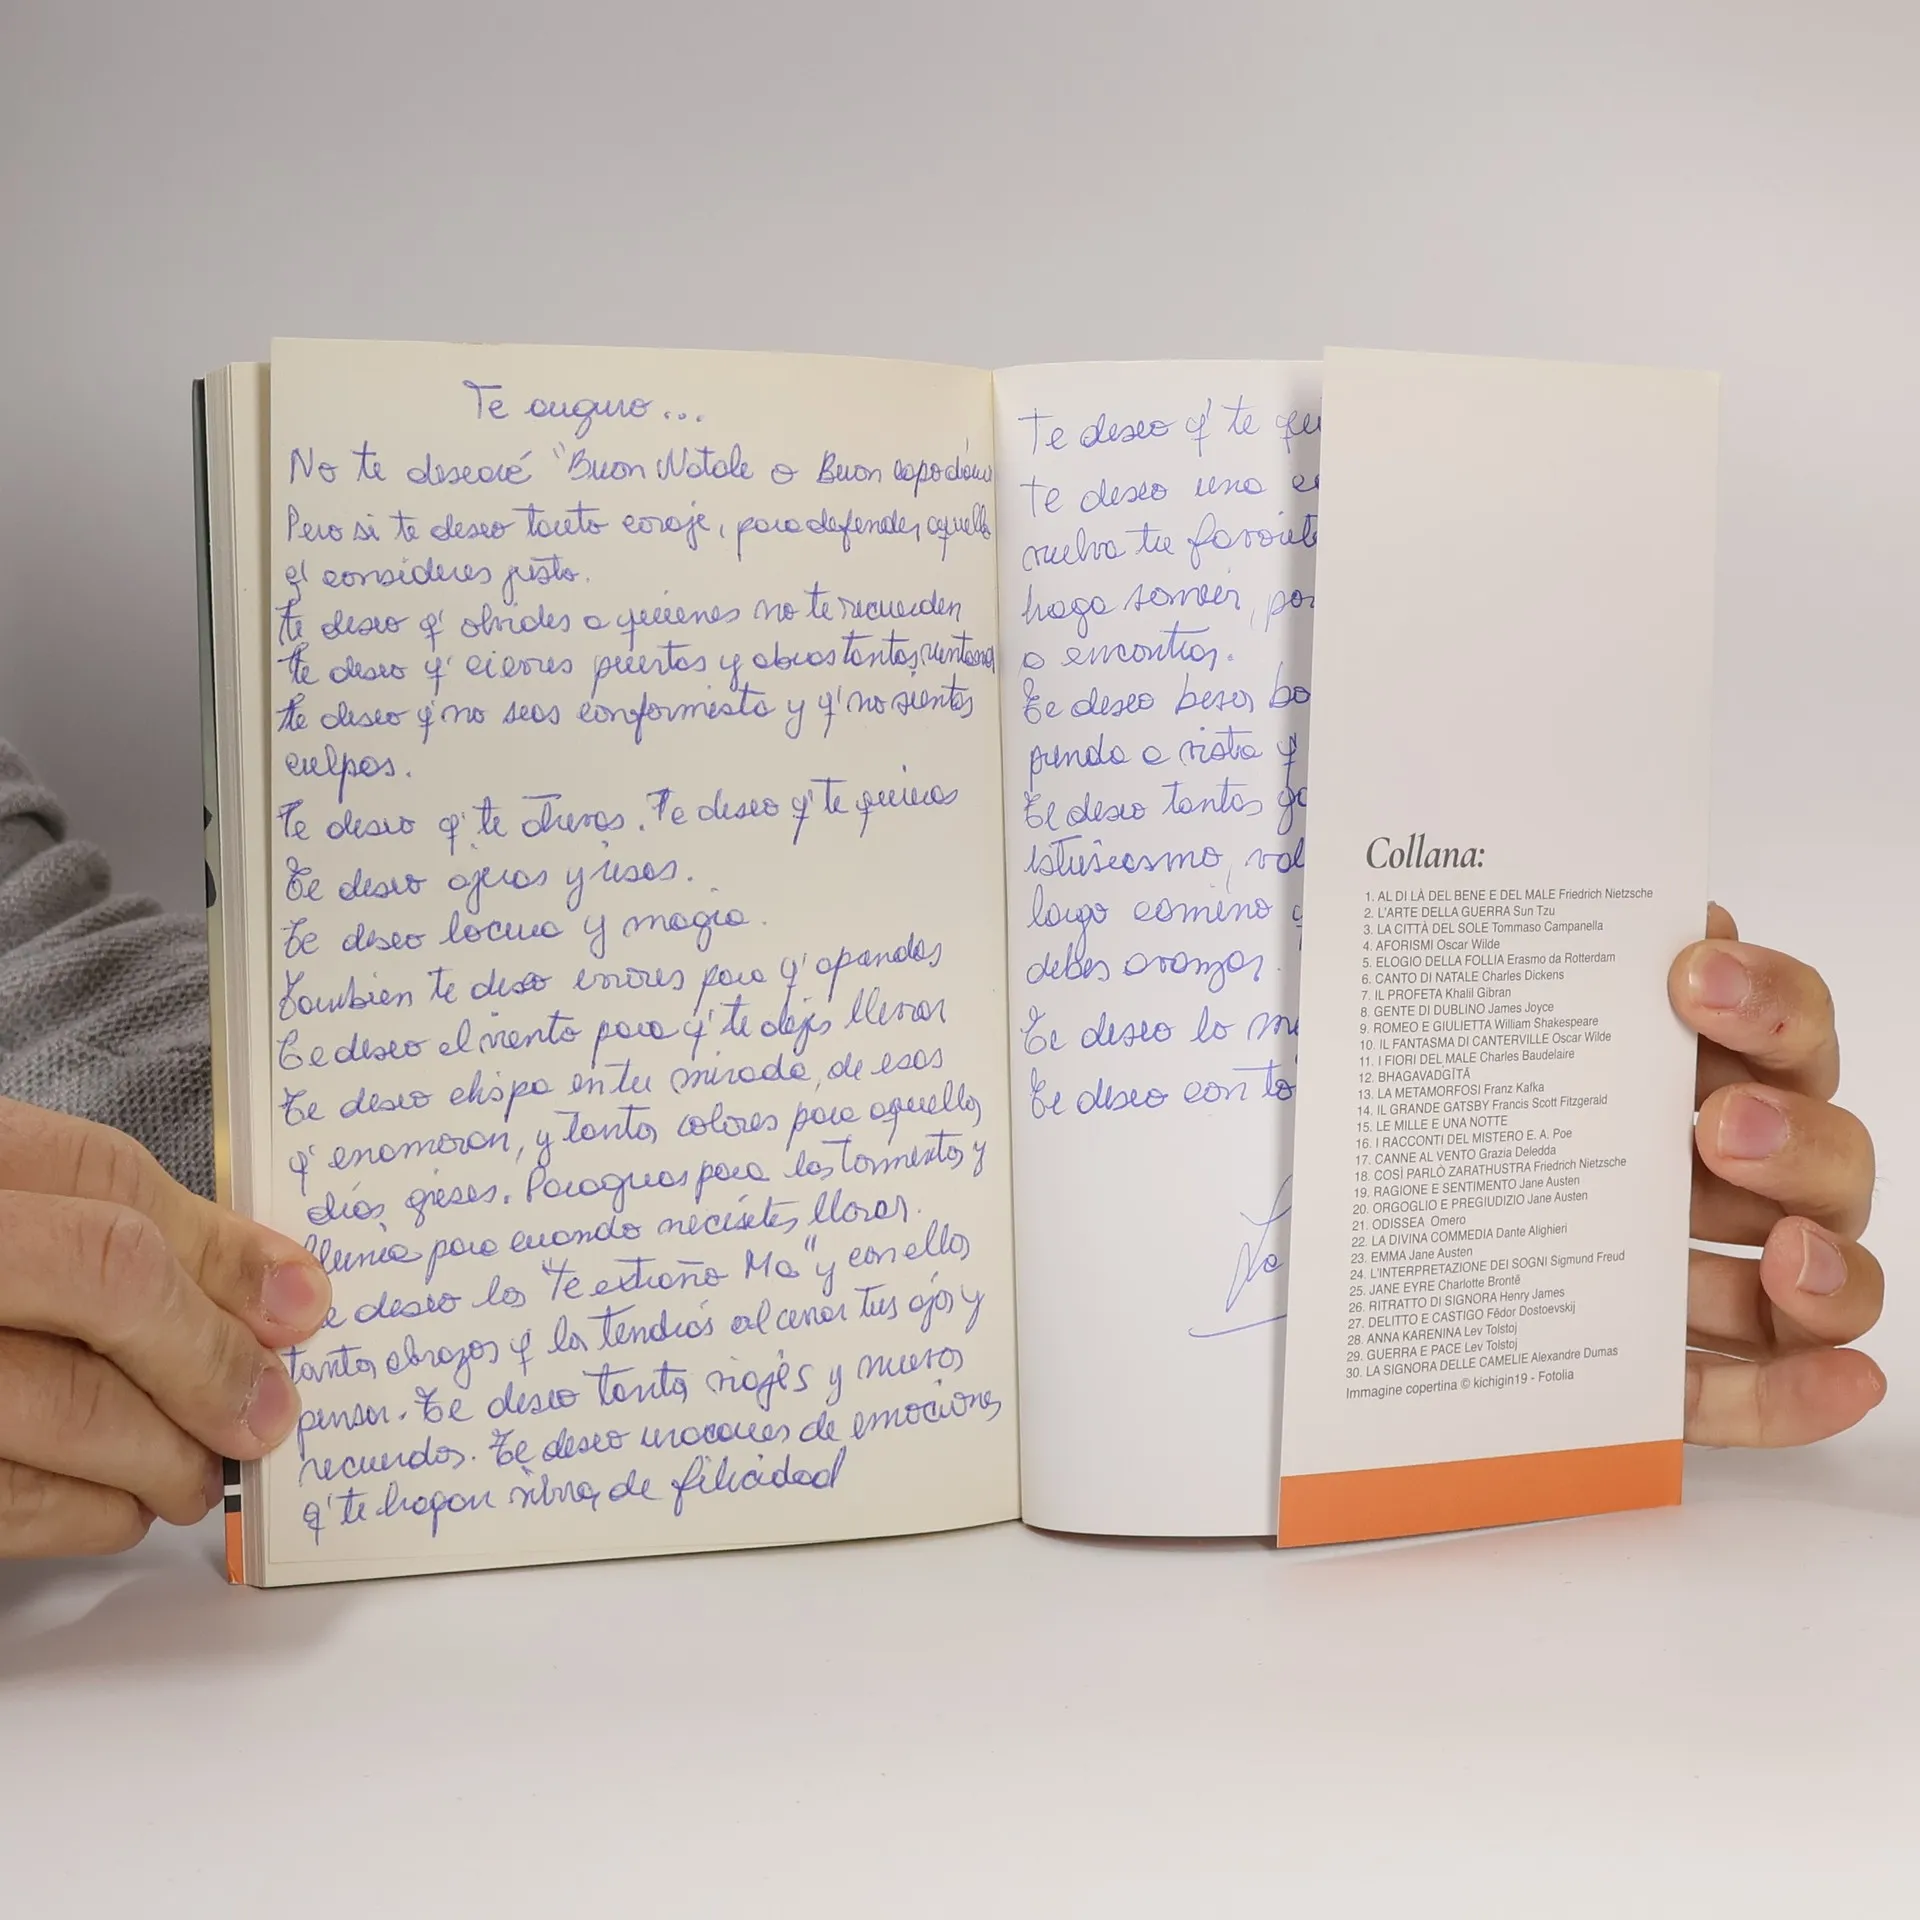 Te auguro...
No te desearé "Buon Natale o Buon capodanno
Pero si te deseo tanto coraje, para defender aquello
q' consideres justo.
te deseo q' olvides a quienes no te recuerden
te deseo q' cierres puertas y abras tantas ventanas
te deseo q' no seas conformista y q' no sientas
culpas.
Te deseo q' te atrevas. Te deseo q' te quieras
Te deseo ojeras y risas.
Te deseo locura y magia.
Tambien te deseo errores para q' aprendas
Te deseo el viento para q' te dejes llevar
Te deseo chispa en tu mirada, de esas
q' enamoran, y tantos colores para aquellos
días grises. Paraguas para las tormentas y
lluvia para cuando necesites llorar.
deseo los "te extraño Ma" y con ellos
tantos abrazos q' los tendrás al cerrar tus ojos y
pensar. Te deseo tantos viajes y nuevos
recuerdos. Te deseo huracanes de emociones
q' te hagan vibrar de felicidad
Te deseo q' te
te deseo una
vuelva tu favorit
haga sonreir, por
a encontrar.
Te deseo besos
a vista q'
Te deseo tantas
largo camino q
debes avanzar.
Te deseo lo
Te deseo con to
Collana:
1. AL DI LÀ DEL BENE E DEL MALE Friedrich Nietzsche
2. L'ARTE DELLA GUERRA Sun Tzu
3. LA CITTÀ DEL SOLE Tommaso Campanella
4. AFORISMI Oscar Wilde
5. ELOGIO DELLA FOLLIA Erasmo da Rotterdam
6. CANTO DI NATALE Charles Dickens
7. IL PROFETA Khalil Gibran
8. GENTE DI DUBLINO James Joyce
9. ROMEO E GIULIETTA William Shakespeare
10. IL FANTASMA DI CANTERVILLE Oscar Wilde
11. I FIORI DEL MALE Charles Baudelaire
12. BHAGAVADGĪTĀ
13. LA METAMORFOSI Franz Kafka
14. IL GRANDE GATSBY Francis Scott Fitzgerald
15. LE MILLE E UNA NOTTE
16. I RACCONTI DEL MISTERO E. A. Poe
17. CANNE AL VENTO Grazia Deledda
18. COSÌ PARLÒ ZARATHUSTRA Friedrich Nietzsche
19. RAGIONE E SENTIMENTO Jane Austen
20. ORGOGLIO E PREGIUDIZIO Jane Austen
21. ODISSEA Omero
22. LA DIVINA COMMEDIA Dante Alighieri
23. EMMA Jane Austen
24. L'INTERPRETAZIONE DEI SOGNI Sigmund Freud
25. JANE EYRE Charlotte Brontë
26. RITRATTO DI SIGNORA Henry James
27. DELITTO E CASTIGO Fëdor Dostoevskij
28. ANNA KARENINA Lev Tolstoj
29. GUERRA E PACE Lev Tolstoj
30. LA SIGNORA DELLE CAMELIE Alexandre Dumas
Immagine copertina © kichigin19 - Fotolia